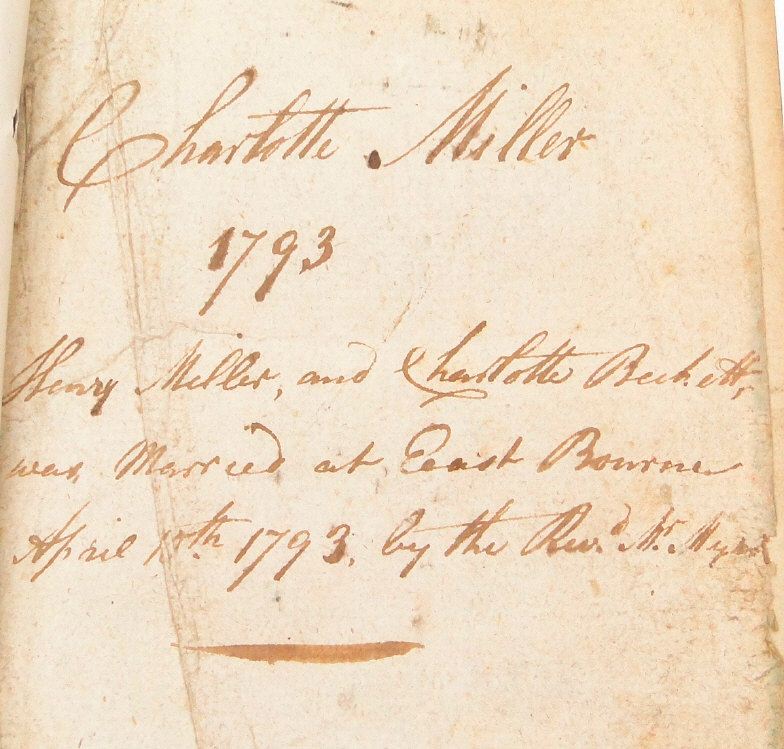 Charlotte . Miller
1793
Henry Miller, and Charlotte Beckett,
was Married at East Bourne
April 1793, by the Revd. Mr.